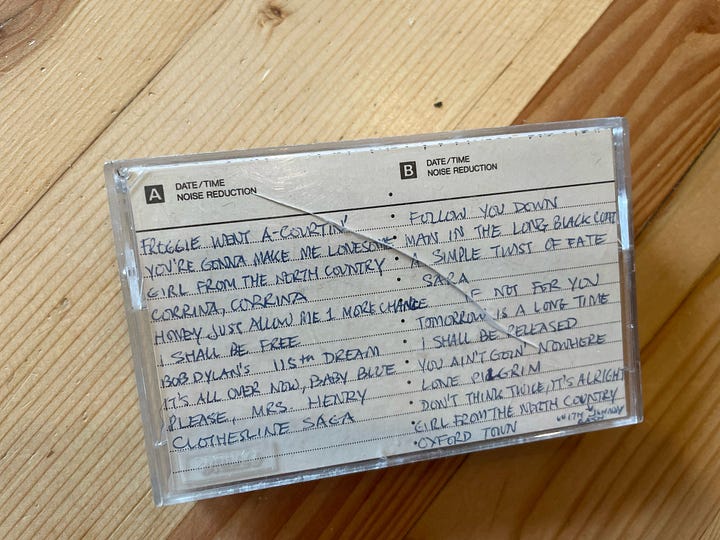 A DATE/TIME
NOISE REDUCTION
FROGGIE WENT A-COURTIN'
YOU'RE GONNA MAKE ME LONESOME
GIRL FROM THE NORTH COUNTRY
CORRINA, CORRINA
HONEY JUST ALLOW ME 1 MORE CHANCE
I SHALL BE FREE
BOB DYLAN'S 115th DREAM
IT'S ALL OVER NOW, BABY BLUE
PLEASE, MRS. HENRY
CLOTHESLINE SAGA
B DATE/TIME
NOISE REDUCTION
• FOLLOW YOU DOWN
• MAN IN THE LONG BLACK COAT
• A SIMPLE TWIST OF FATE
• SARA
• IF NOT FOR YOU
TOMORROW IS A LONG TIME
• I SHALL BE RELEASED
• YOU AIN'T GOIN' NOWHERE
• LONE PILGRIM
• DON'T THINK TWICE, IT'S ALRIGHT
• GIRL FROM THE NORTH COUNTRY
WITH JOHNNY CASH
• OXFORD TOWN